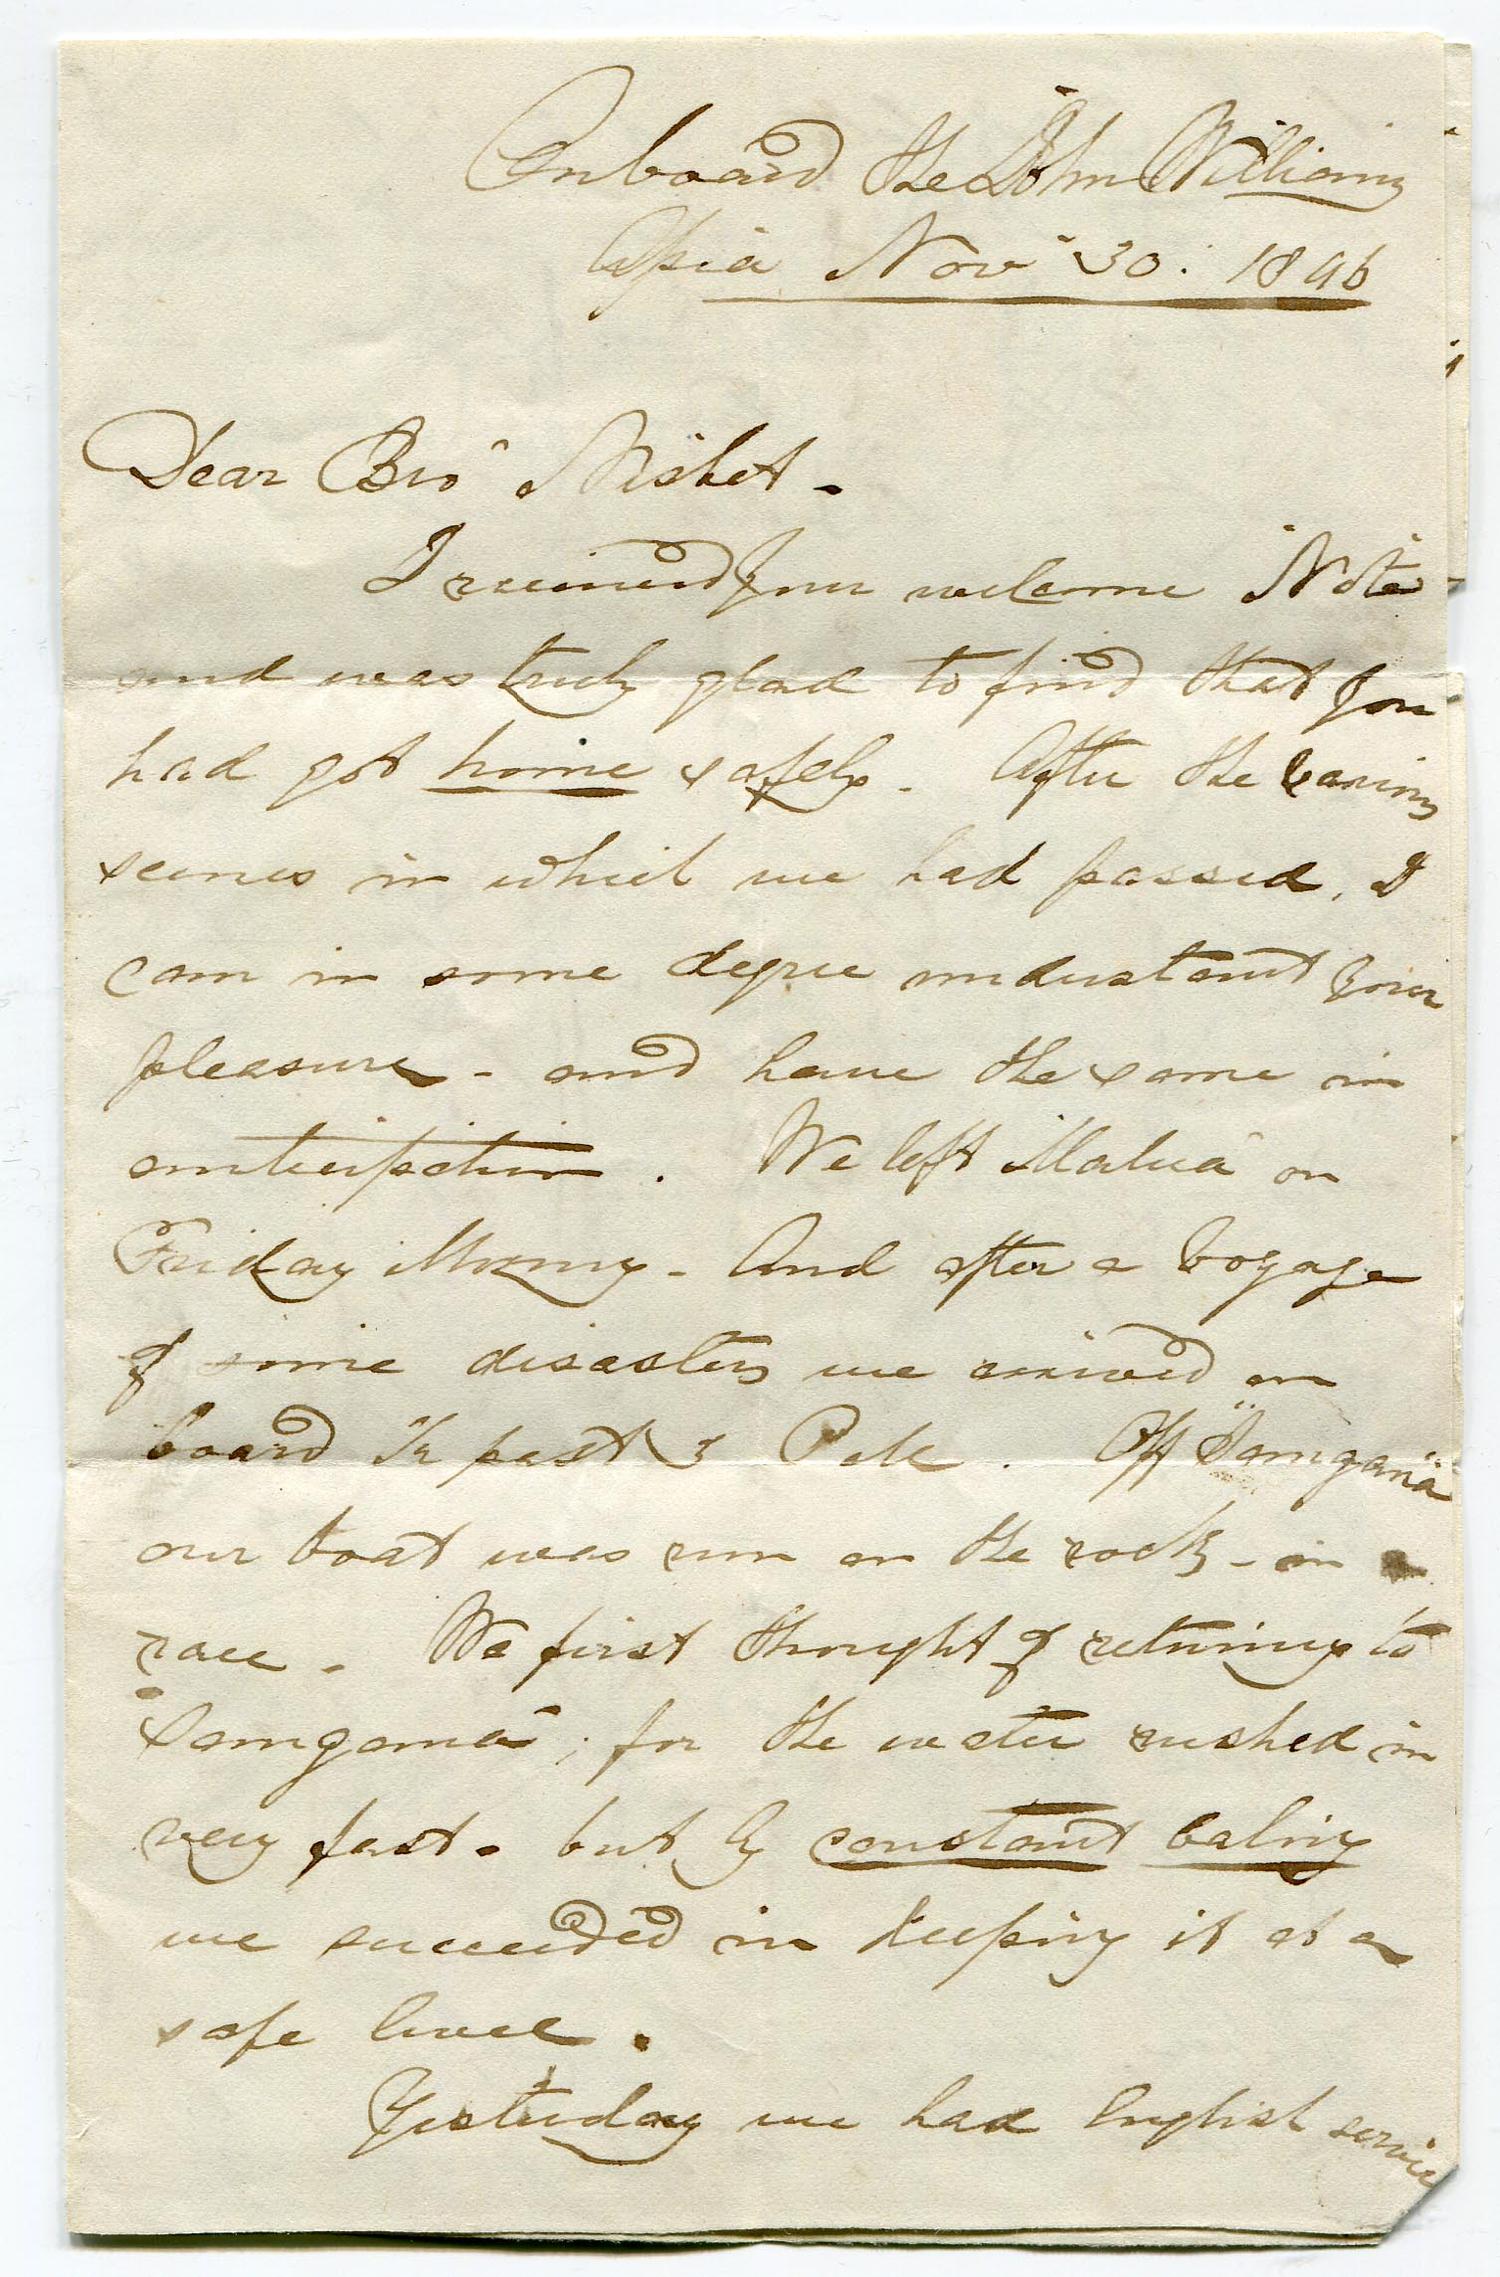 Onboard the "John Williams
Apia Nov 30. 1846
Dear Bro Nisbet -
I received your welcome Note
and was truly glad to find that you
had got home safely. After the various
scenes in which we had passed, I
can in some degree understant your
pleasure - and have the same in
anticipation. We left Malua on
Friday Morning - And after a voyage
of some disasters we arived on
board ½ past 3 Oclk. Off
our boat was run on the rocks - in a
race. We first thought of returning to
for the water rushed in
very fast. but by constant baling
we succeeded in keeping it at a
safe level.
Yesterday we had English service